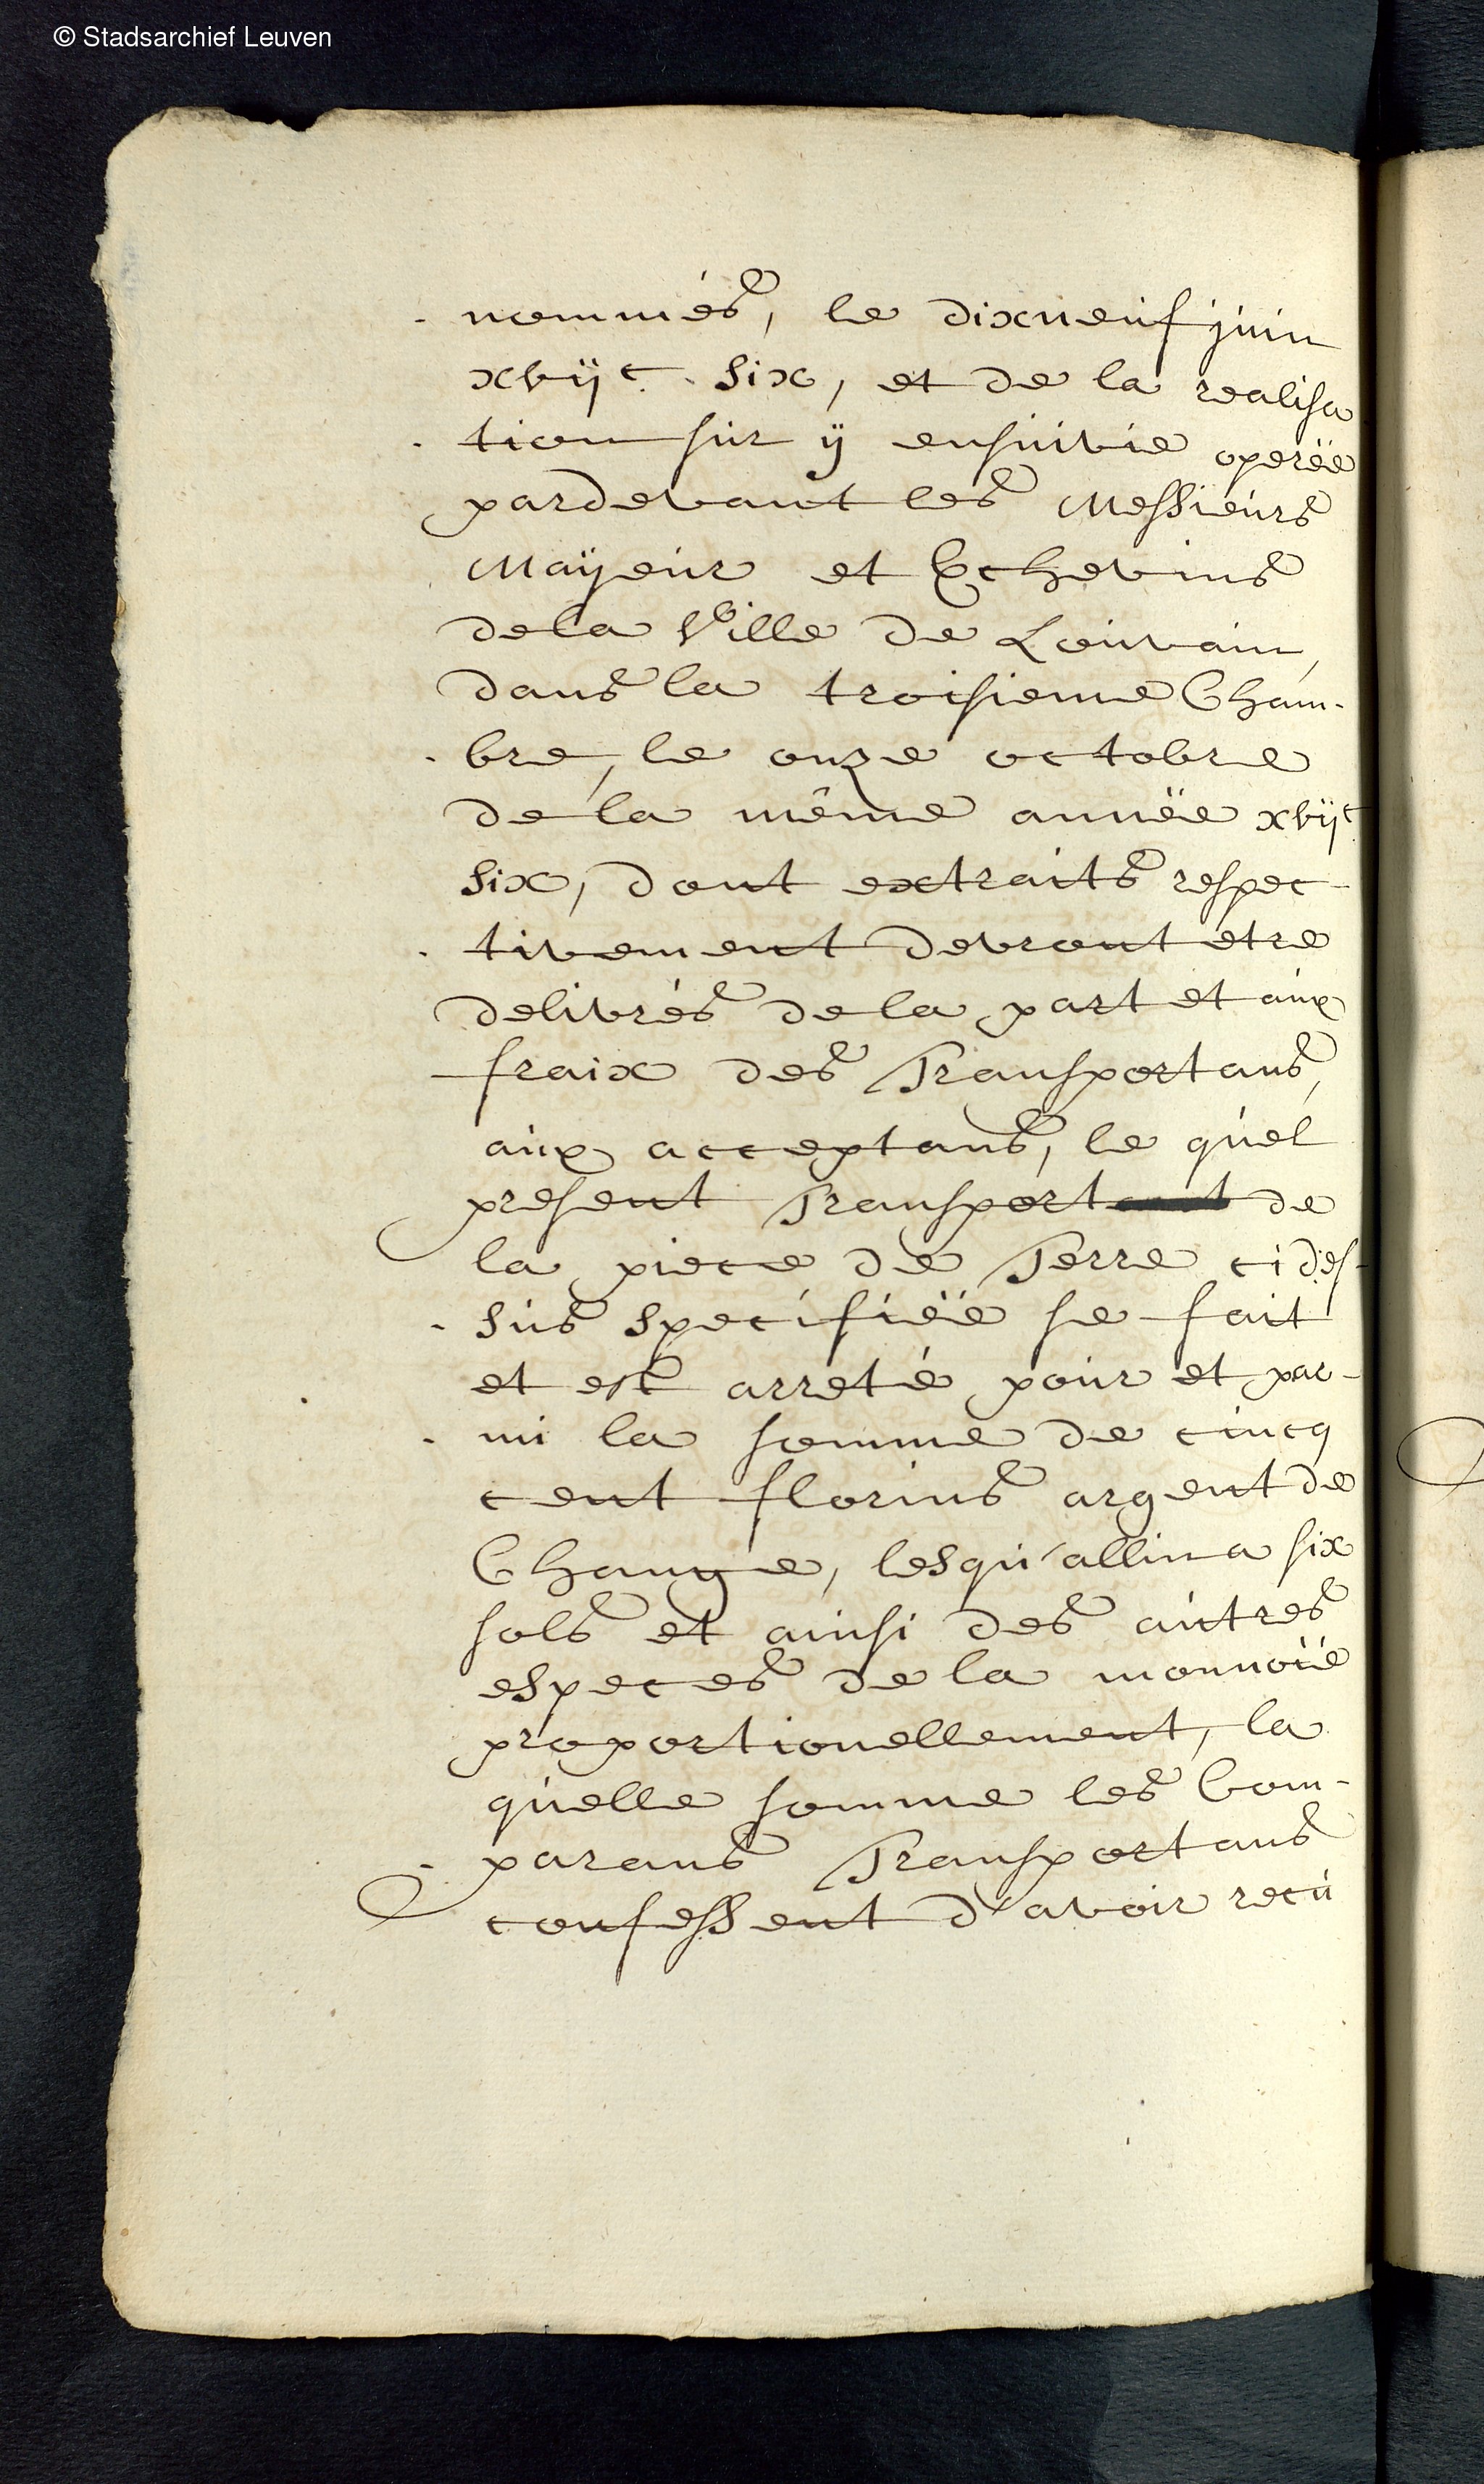 © Stadsarchief Leuven
nommés, le dixneuf juin
xvijc. six, et de la realisa
tion sur ÿ ensuivie operëe
pardevant les Messieurs
Maÿeur et Echevins
dela Ville de Louvain,
dans la troisieme Cham-
bre, le onze octobre
de la même annëe xvijc.
six, dont extraits respec-
tivement devront etre
delivrés de la part et aux
fraix des Transportans,
aux acceptans, le quel
present Transport de
la piece de Terre ci des-
sus specifiëe se fait
et est arreté pour et par-
mi la somme de cincq
cent florins argent de
Change, l'esqu'allin a six
sols et ainsi des autres
especes de la monnoïe
proportionellement, la
quelle somme les Com-
parans Transportans
confessent d'avoir recu